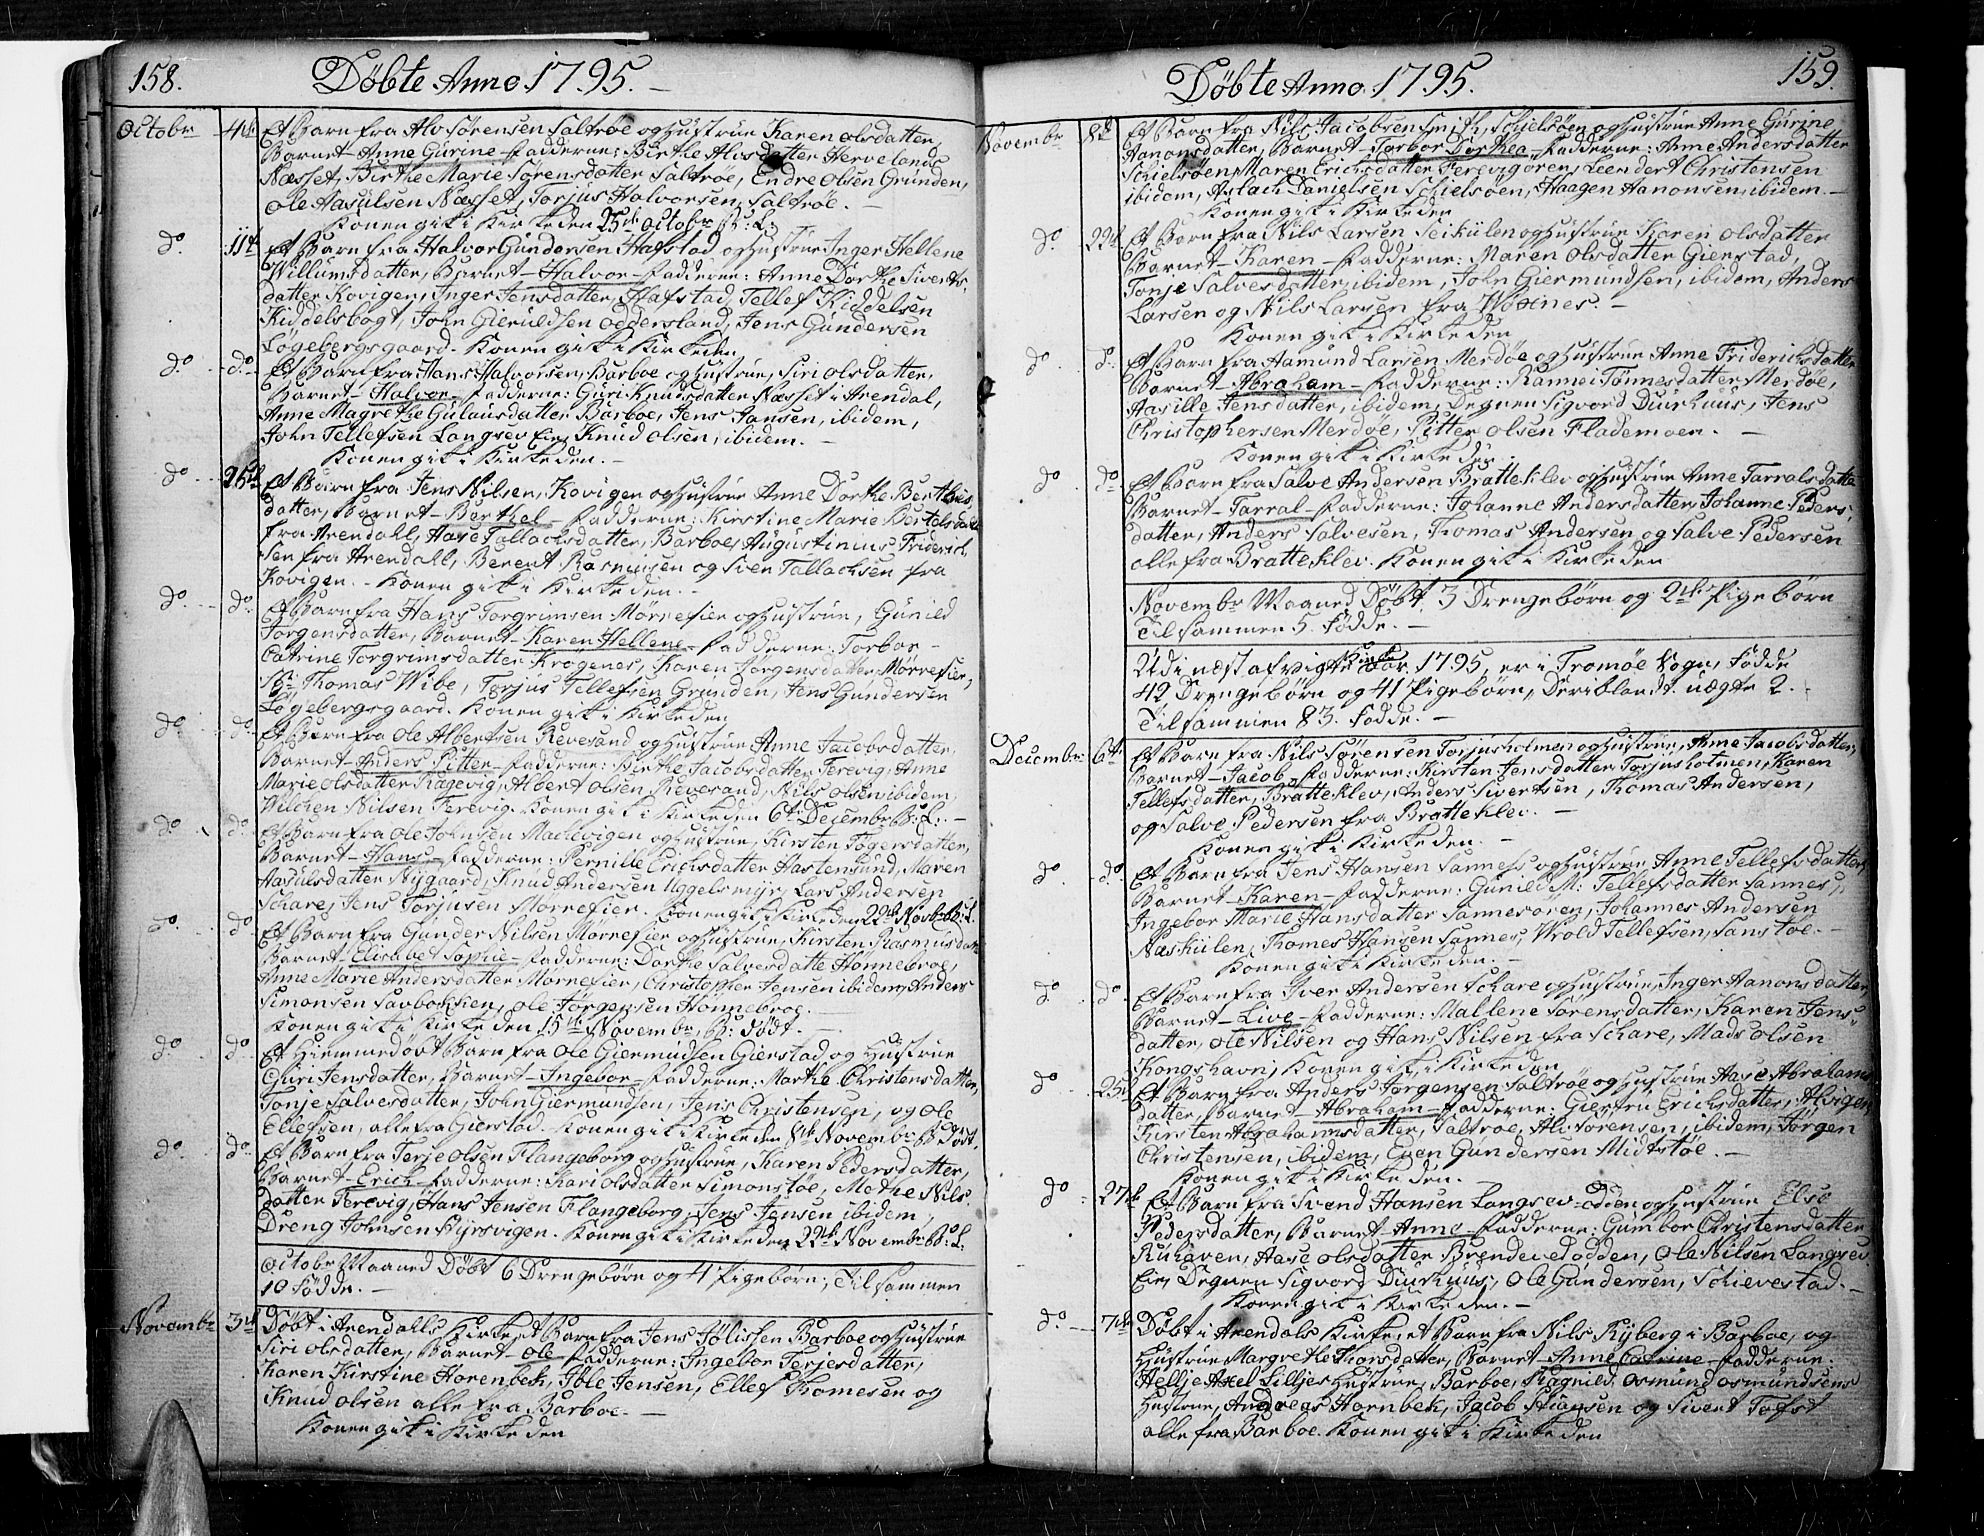 158. Döbte Anno. 1795. –
Octobr 4de Et Barn fra Alv Sörensen Saltröe og Hustrue Karen Olsdatter,
Barnet – Anne Gurine – Fadderne: Birthe Alvsdatter Hervelands
Næsset, Birthe Marie Sörensdatter Saltröe, Endre Olsen Grunden,
Ole Aasulsen Næsset, Torjus Halvorsen, Saltröe. –
Konen gik i Kirke den 25de Octobr
do. 11te Et Barn fra Halvor Gundersen Hafstad og Hustrue Inger Hellene
Willumsdatter, Barnet – Halvor – Fadderne: Anne Dorthe Siverts-
datter Kovigen, Inger Jensdatter, Hafstad, Tellef Kiddelsen
Kiddelsbogt, John Gieruldsen Oddersland, Jens Gundersen
Lögebergsgaard. Konen gik i Kirke den
do. do. Et Barn fra Hans Halvorsen, Barboe og Hustrue, Siri Olsdatter,
Barnet – Halvor – Fadderne: Guri Knudsdatter Næsset i Arendal,
Anne Magrethe Gulausdatter Barboe, Jens Jansen, ibidem,
John Tellefsen Langsev Eie, Knud Olsen, ibidem. –
Konen gik i Kirke den. –
do 25de Et Barn fra Jens Nilsen, Kovigen og Hustrue Anne Dorthe Berthels
datter, Barnet – Berthel – Fadderne: Kirstine Marie Bertelsdatter
fra Arendall, Aase Tallachsdatter, Barboe, Augustinius Friderich
sen fra Arendall, Berent Rasmusen og Sven Tallachsen fra
Kovigen. – Konen gik i Kirke den. –
do. do. Et Barn fra Hans Torgrimsen Mörrefier og Hustrue, Gunild
Jorgensdatter, Barnet – Karen Hellene – Fadderne: Torbor
Catrine Torgrimsdatter Krögenæs, Karen Jorgensdatter Mörrefier,
Thomas Wibe, Torjus Tellefsen Grunden, Jens Gundersen
Lögebergsgaard. Konen gik i Kirke den
do. do. Et Barn fra Ole Albertsen Revesand og Hustrue Anne Jacobsdatter,
Barnet – Anders Pitter – Fadderne: Birthe Jacobsdatter Ferevig, Anne
Marie Olsdatter Ragevig, Albert Olsen, Revesand, Nils Olsen ibidem,
Wilchen Nilsen Ferevig. Konen gik i Kirke den 6te Decembr B: L: –
do. do. Et Barn fra Ole Johnsen Madevigen og Hustrue, Kirsten Tögersdatter,
Barnet – Hans – Fadderne: Pernille Erichsdatter Hastensund, Maren
Aasulsdatter Nygaard, Knud Andersen Uggelsmyr, Lars Andersen
Schare, Jens Torjusen Mörrefier. Konen gik i Kirke den 22de Novbr B: L.
do. do. Et Barn fra Gunder Nilsen Mörrefier og Hustrue, Kirsten Rasmusdatt
Barnet – Elisabet Sophie – Fadderne: Dorthe Salvesdatte Hönnebroe,
Anne Marie Andersdatter Mörrefier, Christopher Jensen ibidem, Anders
Simonsen Savbakken, Ole Jörgensen Hönnebroe. –
Konen gik i Kirke den 15de Novembr. B: Födt. –
do. do. Et Hiemmedöbt Barn fra Ole Giermudsen Gierstad og Hustrue
Guri Jensdatter, Barnet – Ingebor – Fadderne: Marthe Christensdatter,
Tonje Salvesdatter, John Giermundsen, Jens Christensen, og Ole
Ellefsen, alle fra Gierstad. Konen gik i Kirke den 8de Novembr B: Födt.
do. do. Et Barn fra Terje Olsen Flangeborg og Hustrue, Karen Pedersdatter,
Barnet – Erich – Fadderne: Kari Olsdatter Simonstöe, Methe Nils
datter Ferevig, Hans Jensen Flangeborg, Jens Jensen ibidem,
Dreng Johnsen Kyrsvigen. Konen gik i Kirke den 22de Novembr B: L:
Octobr Maaned Döbt 6 Drengebörn og 4 Pigebörn, Tilsammen
10 Födde. –
Novembr 3de Döbt i Arendalls Kirke et Barn fra Jens Jölissen Barboe og Hustrue
Siri Olsdatter, Barnet – Ole – Fadderne: Ingebor Terjesdatter,
Karen Kirstine Horenbek, Jens Jensen, Ellef Thomesen og
Knud Olsen alle fra Barboe. –
Konen gik i Kirke den
Döbte Anno. 1795. 159.
Novembr 8de Et Barn fra Nils Jacobsen Smith, Schielsöen og Hustrue Anne Gurine
Aanonsdatter, Barnet – Torbor Dorthea – Fadderne: Anne Andersdatter
Schielsöen, Maren Erichsdatter Ferevigören, Leendert Christensen
ibidem, Aslach Danielsen Schielsöen, Haagen Aanonsen, ibidem. –
Konen gik i Kirke den
do. 22de Et Barn fra Nils Larsen Seikulen og Hustrue Karen Olsdatter
Barnet – Karen – Fadderne: Maren Olsdatter Gierstad,
Tonje Salvesdatter, ibidem, John Giermundsen, ibidem, Anders
Larsen og Nils Larsen fra Woxnes. –
Konen gik i Kirke den
do. do. Et Barn fra Aamund Larsen Merdöe og Hustrue Anne Friderichsdatter
Barnet – Abraham – Fadderne: Rannei Tönnesdatter, Merdöe,
Aasille Jensdatter, ibidem, Degnen Sigvord Duurhuus, Jens
Christophersen Merdöe, Pitter Olsen Flademoen. –
Konen gik i Kirke den
do. do. Et Barn fra Salve Andersen Bratteklev og Hustrue Anne Tarralsdatte
Barnet – Tarral – Fadderne: Johanne Andersdatter, Johanne Peders-
datter, Anders Salvesen, Thomas Andersen og Salve Pedersen
alle fra Bratteklev. Konen gik i Kirke den
Novembr Maaned Döbt 3 Drengebörn og 2de Pigebörn
Tilsammen 5. Födde. –
Udi næst afvigte Kirke Aar 1795, er i Tromöe Sogn, Födde
42 Drengebörn og 41 Pigebörn, Deriblandt uægte 2. –
Tilsammen 83. Födde. –
Decembr 6te Et Barn fra Nils Sörensen Torjusholmen og Hustrue, Anne Jacobsdatter,
Barnet – Jacob, Fadderne: Kirsten Jensdatter Torjusholmen, Karen
Tellefsdatter, Bratteklev, Anders Sivertsen, Thomas Andersen,
og Salve Pedersen fra Bratteklev. –
Konen gik i Kirke den. –
do. do. Et Barn fra Jens Hansen Sanness og Hustrue Anne Tellefsdatter,
Barnet – Karen – Fadderne: Gunild M: Tellefsdatter Sannes,
Ingebor Marie Hansdatter Sannesören, Johannes Andersen
Næskiilen, Thomes Hansen Sannes, Wrold Tellefsen, Sanstöe. –
Konen gik i Kirke den. –
do. do. Et Barn fra Iver Andersen Schare og Hustrue, Inger Aanonsdatter,
Barnet – Live – Fadderne: Mallene Sörensdatter, Karen Jens-
datter, Ole Nilsen og Hans Nilsen fra Schare, Mads Olsen
Kongshavn, Konen gik i Kirke den
do 25de Et Barn fra Anders Jorgensen Saltröe og Hustrue Aase Abrahams
datter, Barnet – Abraham – Fadderne: Giertru Erichsdatter, Alvigen,
Kirsten Abrahamsdatter, Saltröe, Alv Sörensen, ibidem, Jörgen
Christensen, ibidem, Even Gundersen Midtstöe. –
Konen gik i Kirke den. –
do. 27de Et Barn fra Svend Hansen Langsev-Odden og Hustrue Else
Pedersdatter, Barnet – Anne – Fadderne: Gumbor Christensdatter
Ruhaven, Aase Olsdatter Brendeved odden, Ole Nilsen Langsev
Eie, Degnen Sigvord Duurhuus, Ole Gundersen, Schievestad. –
Konen gik i Kirke den. –
do 7de Döbt i Arendals Kirke, et Barn fra Nils Ryberg i Barboe, og
Hustrue Margrethe Thorsdatter, Barnet – Anne Catrine – Fadderne:
Helije Axel Lilljes Hustrue, Barboe, Ragnild, Osmund Osmundsens
Hustrue, Andreas Hornbek, Jacob Stiansen og Sivert Tofst
alle fra Barboe. Konen gik i Kirke den